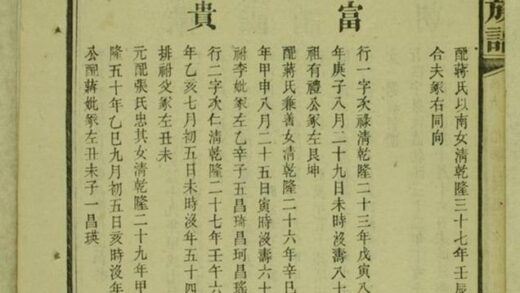 族譜
配蔣氏以南女清乾隆三十七年壬辰
合夫冢右同向
富
行一字次祿清乾隆二十三年戊寅八
年庚子八月二十九日未時沒壽八十
祖有禮公冢左艮坤
配蔣氏兼善女清乾隆二十六年辛巳
年甲申八月二十五日寅時沒壽六十
祔李妣冢左乙辛子五昌琦昌珂昌瑤
貴
行二字次仁清乾隆二十七年壬午六
年乙亥七月初五日未時沒年五十四
排祔父冢左丑未
元配張氏忠其女清乾隆二十九年甲
隆五十年乙巳九月初五日亥時沒年
公配蔣妣冢左丑未子一昌瑛